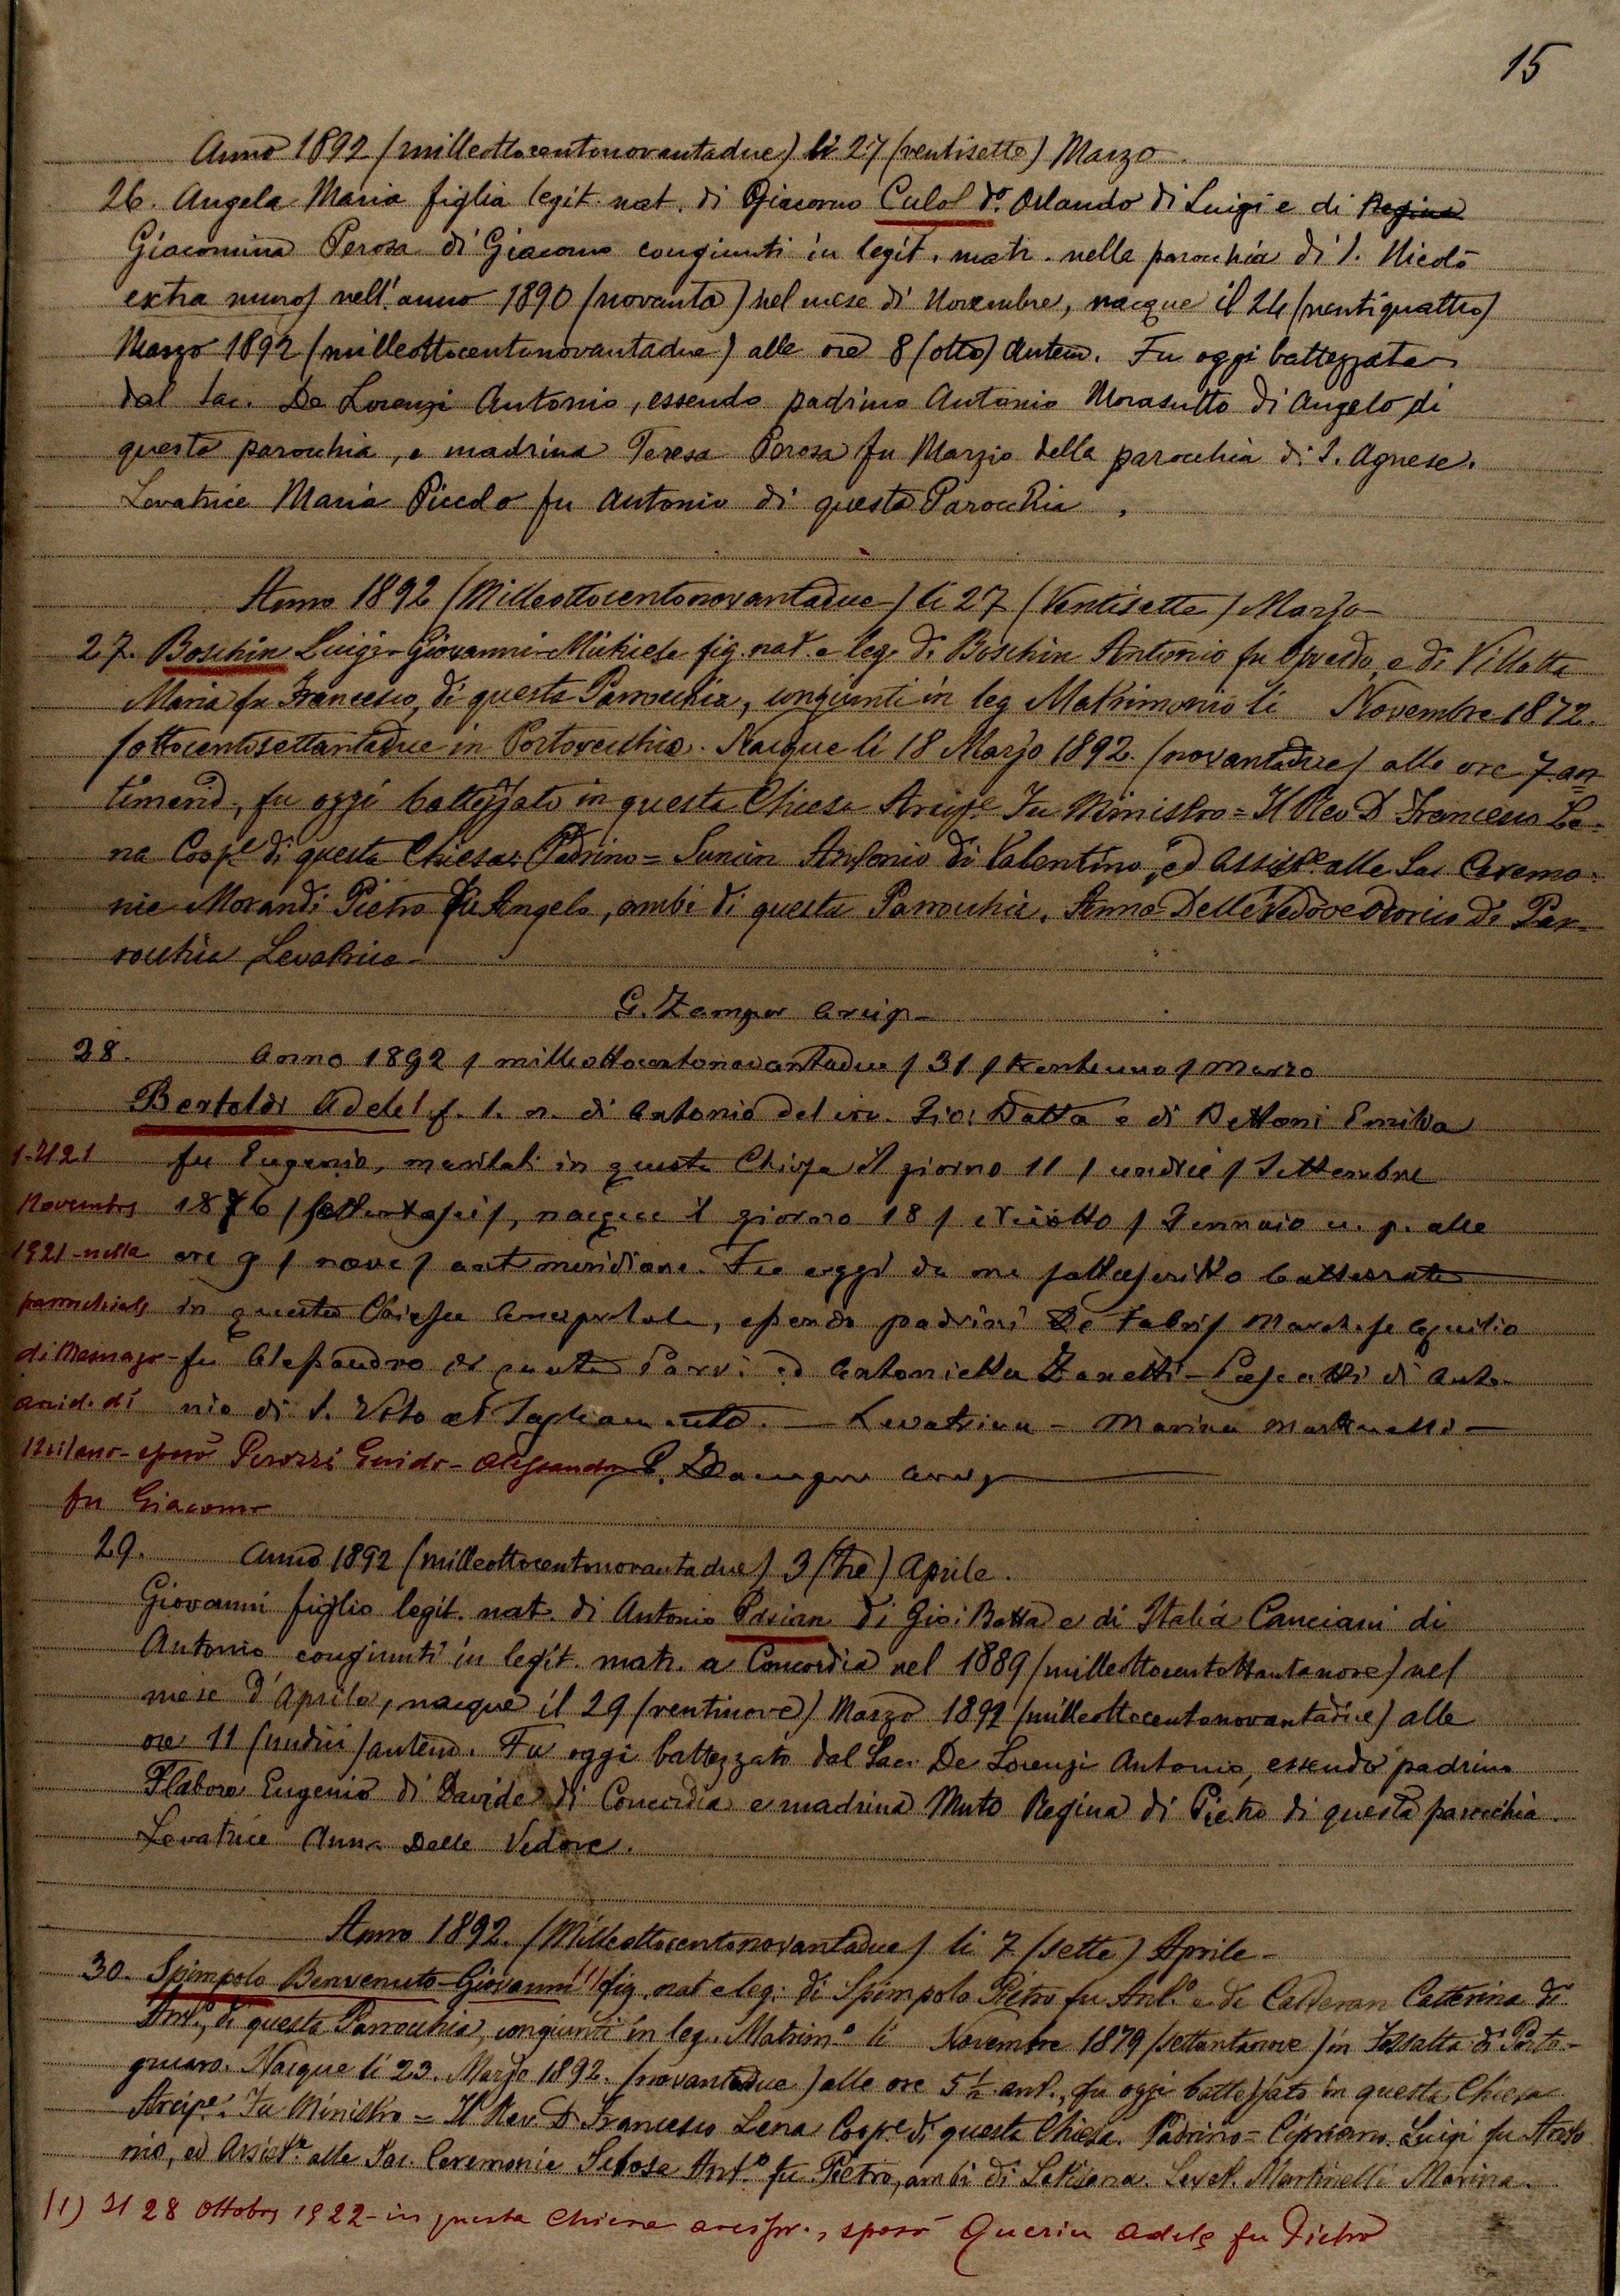 15
Anno 1892 (milleottocentonovantadue) li 27 (ventisette) Marzo.
26. Angela Maria figlia legit. nat. di Giacomo Culol do. Orlando di Luigi e di Regina
Giacomina Perosa di Giacomo congiunti in legit. matr. nella parocchia di S. Nicolò
extra muros nell'anno 1890 (novanta) nel mese di Novembre, nacque il 24 (ventiquattro)
Marzo 1892 (milleottocentonovantadue) alle ore 8 (otto) antem. Fu oggi battezzata
dal Sac. De Lorenzi Antonio, essendo padrino Antonio Morasutto di Angelo di
questa parocchia, e madrina Teresa Perosa fu Marzio della parocchia di S. Agnese.
Levatrice Maria Piccolo fu Antonio di questa Parocchia.
Anno 1892 (Milleottocentonovantadue) li 27 (Ventisette) Marzo
27. Boschin Luigi-Giovanni-Michiele fig. nat. e leg. di Boschin Antonio fu e di Villotta
Maria fu Francesco, di questa Parrocchia, congiunti in leg Matrimonio li Novembre 1872.
(ottocentosettantadue in Portovecchio. Nacque li 18 Marzo 1892. (novantadue) alle ore 7 an=
timerid., fu oggi battezzato in questa Chiesa Arcipe. Fu Ministro = Il Rev D Francesco Le-
na Coope di questa Chiesa: Padrino = Sunin Antonio di Valentino, ed assiste. alle Sac Ceremo-
nie Morandi Pietro fu Angelo, ambi di questa Parrocchia. Anna Delle Vedove Odorico di Par-
rocchia Levatrice-
G. Zamper Arcip-
28. Anno 1892 / milleottocentonovantadue / 31 / trentuno / Marzo
Bertoldi Adele 1 f. l. n. di Antonio del viv. Gio: Batta e di Bettoni Emilia
fu Eugenio, maritati in questa Chiesa il giorno 11 / undici / Settembre
1876 / settantasei /, nacque il giorno 18 / diciotto / Gennaio u. p. alle
ore 9 / nove / antimeridiane. Fu oggi da me sottoscritto battezzata
in questa Chiesa Arcipretale, essendo padrini De Fabris Marchese Aquilio
fu Alessandro di questa Parr. ed Antonietta Zanetti-Pascatti di Anto-
nio di S. Vito al Tagliamento. — Levatrice - Marina Martinelli -
G. Zamper Arcip
1- Il 21
Novembre
1921 - nella
parrochiale
di
arcid. di
Milano - sposò Perozzi Guido - Alessandro
fu Giacomo
29. Anno 1892 (milleottocentonovantadue) 3 (tre) Aprile.
Giovanni figlio legit. nat. di Antonio Prsian di Gio: Batta e di Italia Canciani di
Antonio congiunti in legit. matr. a Concordia nel 1889 (milleottocentottantanove) nel
mese d'Aprile, nacque il 29 (ventinove) Marzo 1892 (milleottocentonovantadue) alle
ore 11 (undici) antem. Fu oggi battezzato dal Sac. De Lorenzi Antonio, essendo padrino
Flabore Eugenio di Davide di Concordia e madrina Muto Regina di Pietro di questa parocchia.
Levatrice Anna Delle Vedove.
Anno 1892. (Milleottocentonovantadue) li 7 (sette) Aprile-
30. Spimpolo Benvenuto-Giovanni (1) fig. nat e leg: di Spimpolo Pietro fu Anto. e di Calderan Catterina di
Anto., di questa Parrocchia, congiunti in leg. Matrimo li Novembre 1879 (settantanove) in Fossalta di Porto-
gruaro. Nacque li 23. Marzo 1892. (novantadue) alle ore 5 1/2 ant., fu oggi battezzato in questa Chiesa
Arcipe. Fu Ministro = Il Rev D. Francesco Lena Coope di questa Chiesa. Padrino = Cipriano Luigi fu Anto-
nio, ed Assiste. alle Sac. Ceremonie Anto. fu Pietro, ambi di Latisana. Levat. Martinelli Marina.
(1) Il 28 Ottobre 1922 - in questa Chiesa arcipr., sposò Querin Adele fu Pietro